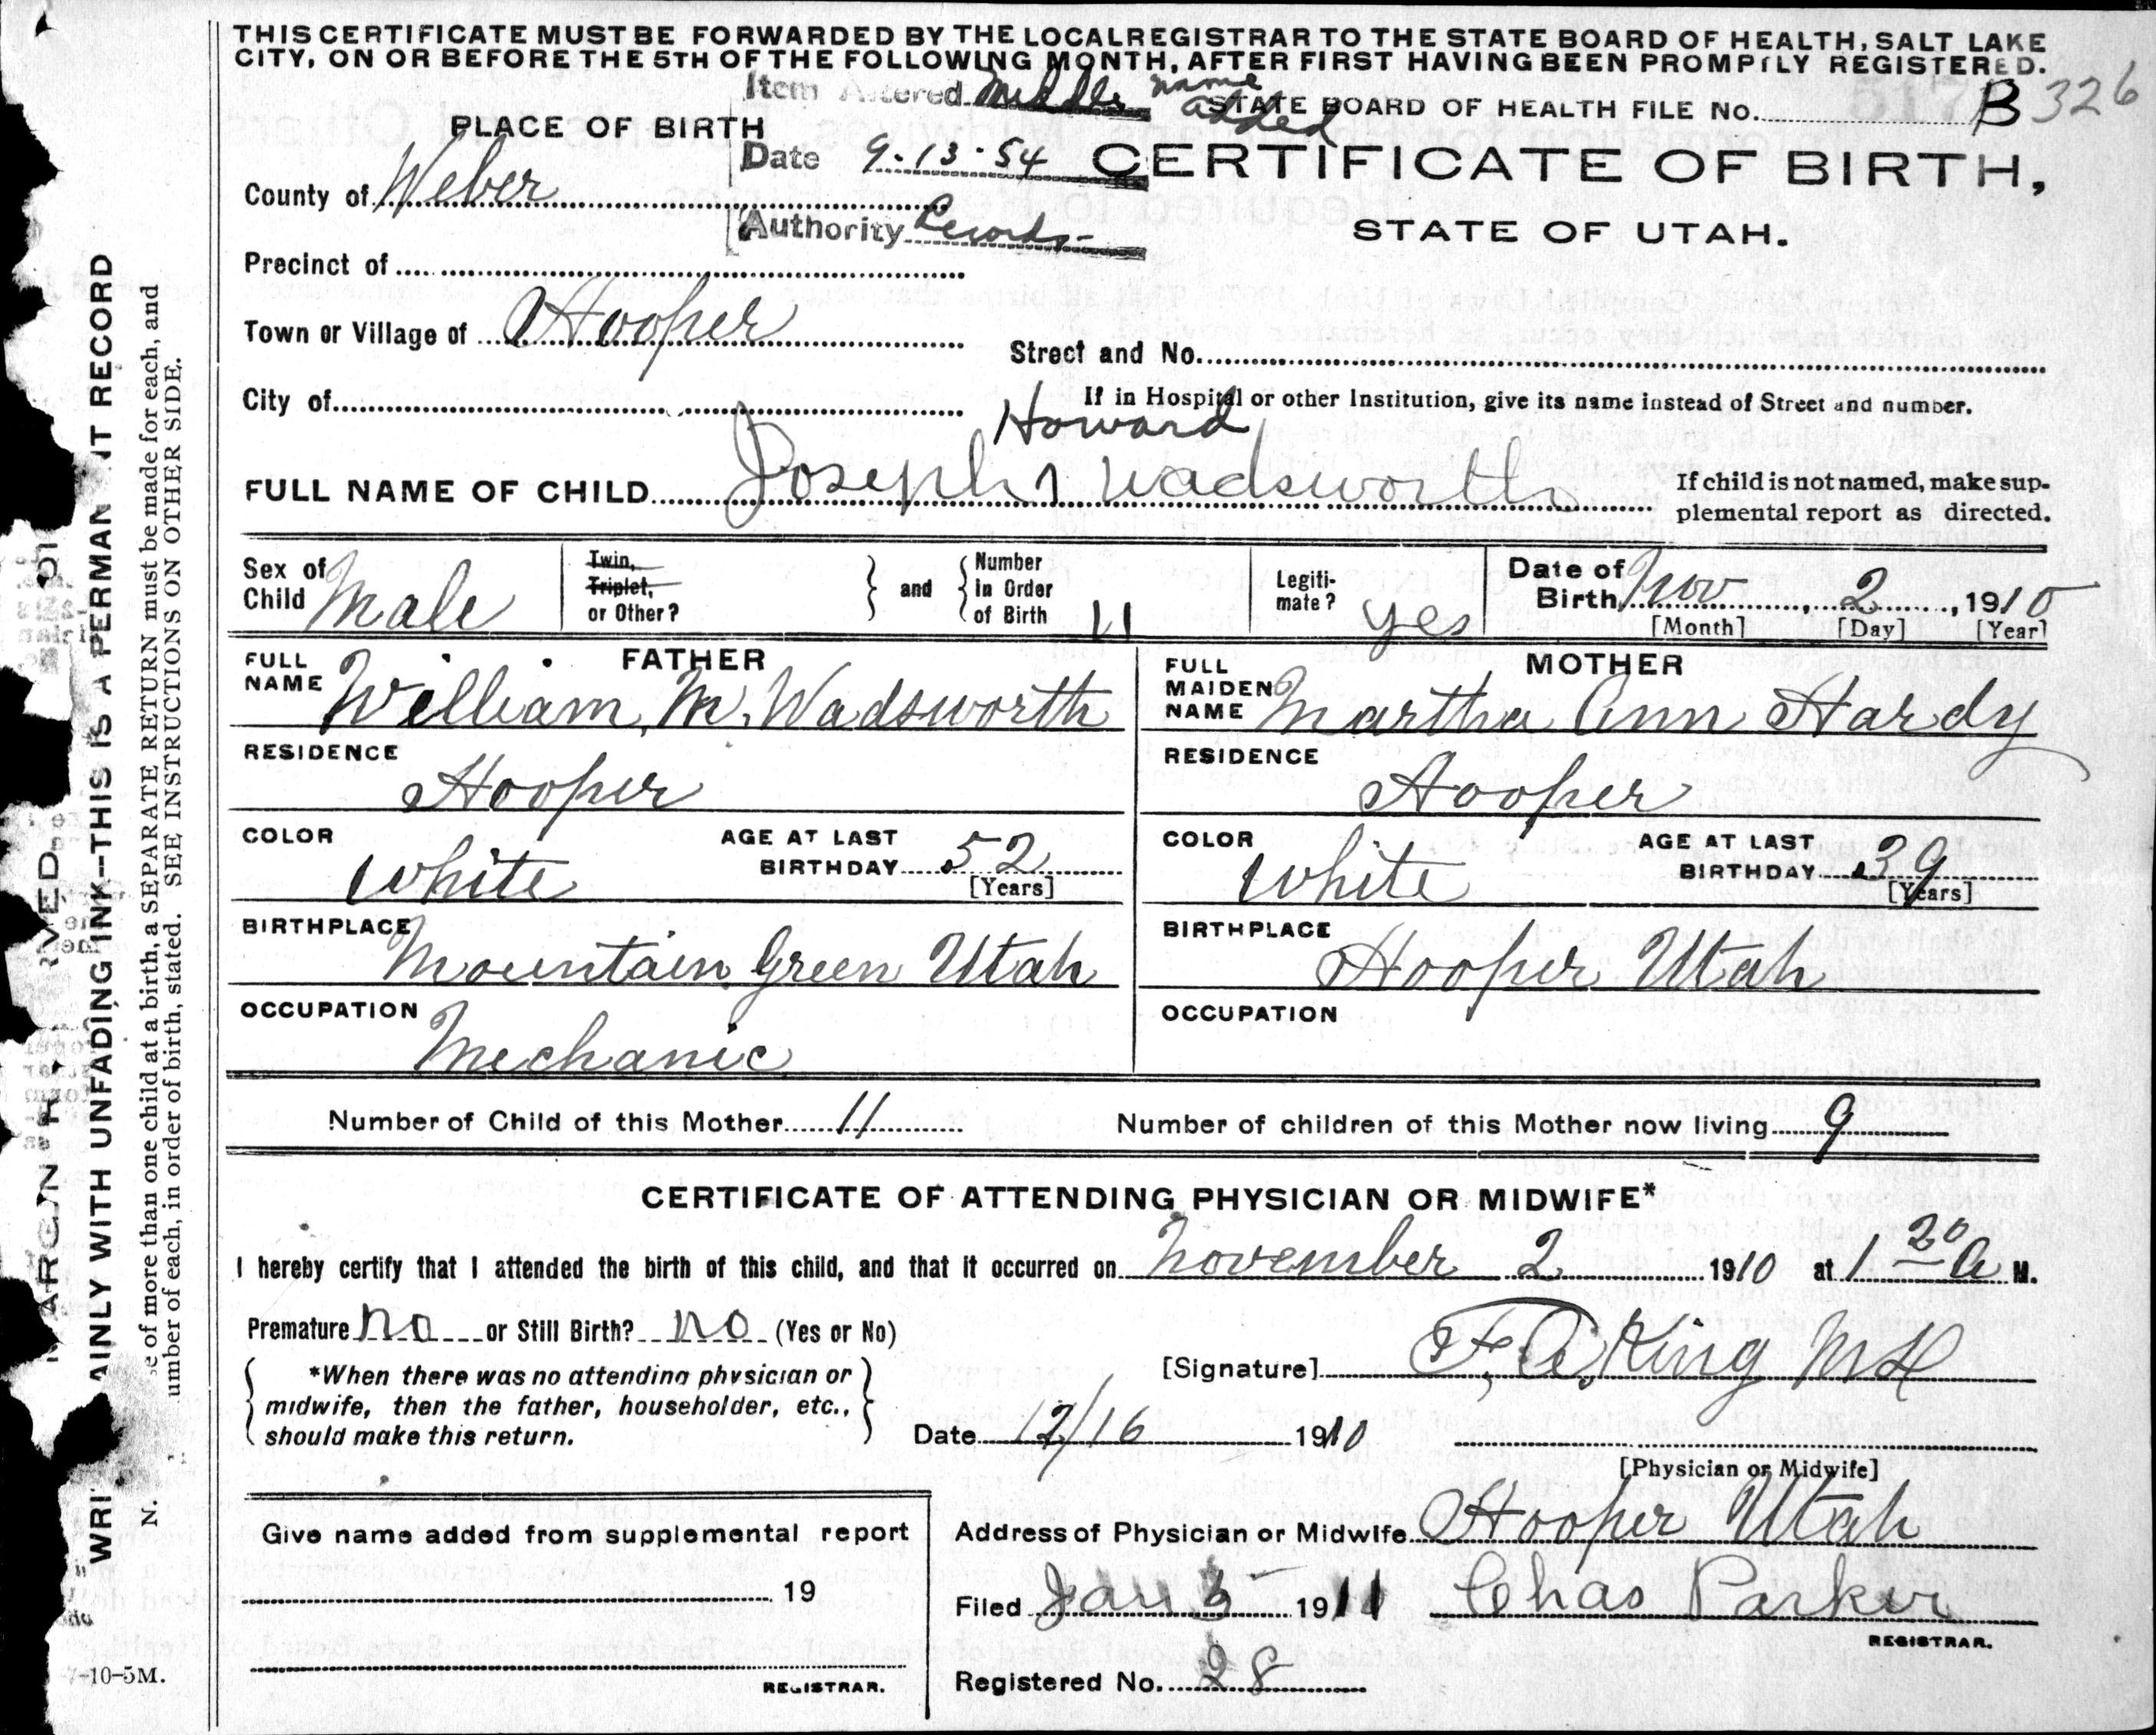 THIS CERTIFICATE MUST BE FORWARDED BY THE LOCAL REGISTRAR TO THE STATE BOARD OF HEALTH, SALT LAKE
CITY, ON OR BEFORE THE 5TH OF THE FOLLOWING MONTH, AFTER FIRST HAVING BEEN PROMPTLY REGISTERED.
Item Altered Middle name added
STATE BOARD OF HEALTH FILE No. B 326
PLACE OF BIRTH
Date 9-13-54
CERTIFICATE OF BIRTH,
County of Weber
Authority Records-
STATE OF UTAH.
Precinct of
Town or Village of Hooper
Street and No.
City of
If in Hospital or other Institution, give its name instead of Street and number.
Howard
FULL NAME OF CHILD Joseph Wadsworth
If child is not named, make sup-
plemental report as directed.
Sex of Child Male
Twin, Triplet, or Other?
and
Number in Order of Birth 11
Legiti-mate? yes
Date of Birth Nov 2, 1910
[Month] [Day] [Year]
FATHER
FULL NAME William M. Wadsworth
RESIDENCE
Hooper
COLOR White
AGE AT LAST BIRTHDAY 52
[Years]
BIRTHPLACE
Mountain Green Utah
OCCUPATION
Mechanic
MOTHER
FULL MAIDEN NAME Martha Ann Hardy
RESIDENCE
Hooper
COLOR White
AGE AT LAST BIRTHDAY 39
[Years]
BIRTHPLACE
Hooper Utah
OCCUPATION
Number of Child of this Mother 11 Number of children of this Mother now living 9
CERTIFICATE OF ATTENDING PHYSICIAN OR MIDWIFE*
I hereby certify that I attended the birth of this child, and that it occurred on November 2 1910 at 1 20 A M.
Premature no or Still Birth? no (Yes or No)
*When there was no attending physician or
midwife, then the father, householder, etc.,
should make this return.
[Signature] F. A. King MD
Date 12/16 1910
[Physician or Midwife]
Give name added from supplemental report
19
REGISTRAR.
Address of Physician or Midwife Hooper Utah
Filed Jan 5 1911 Chas Parker
REGISTRAR.
Registered No. 28
AINLY WITH UNFADING INK--THIS IS A PERMAN NT RECORD
N.
e of more than one child at a birth, a SEPARATE RETURN must be made for each, and
umber of each, in order of birth, stated. SEE INSTRUCTIONS ON OTHER SIDE.
-10-5M.